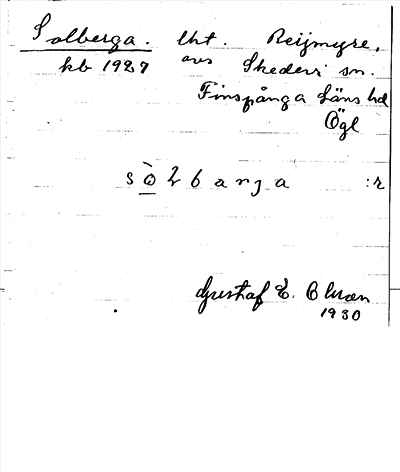 Solberga. lht. Reijmyre,
kb 1929 avs Skedevi sn.
Finspånga läns hd
Ögl
sȯ̀lbarja :r
Gustaf E. Olson
1930